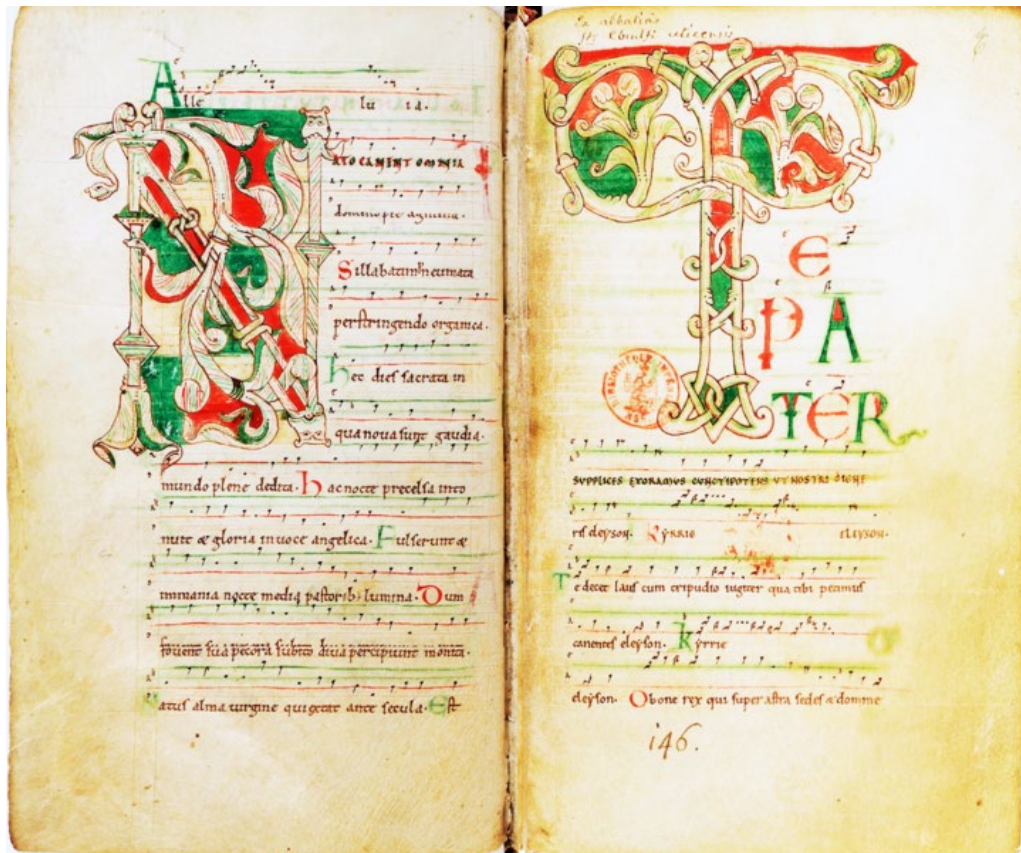 Alle lu ia.
NATO CANUNT OMNIA
domino pie agmina.
Sillabatim neumata
perstringendo organica.
Hec dies sacrata in
qua nova sunt gaudia.
mundo plene dedita. Hac nocte precelsa into
nuit & gloria in voce angelica. Fulserunt &
inmania nocte media pastorib; lumina. Dum
fovent sua pecora subito diva percipiunt monita.
Natus alma virgine qui extat ante secula. Est
Ex abbatia
sti Ebrulfi uticensis
TE
PA
TER
SUPPLICES EXORAMUS CUNCTIPOTENS UT NOSTRI DIGNE
ris eleyson. KYRRIE ELEYSON.
Te decet laus cum tripudio iugiter qua tibi petimus
canentes eleyson. Kyrrie
eleyson. O bone rex qui super astra sedes & domine
146.